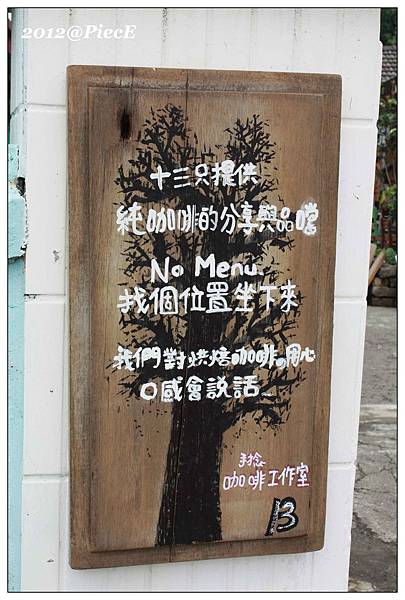 2012@PiecE
十三只提供
純咖啡的分享與品嚐
No Menu.
找個位置坐下來
我們對烘焙咖啡的用心
口感會說話
手捻
咖啡工作室
13